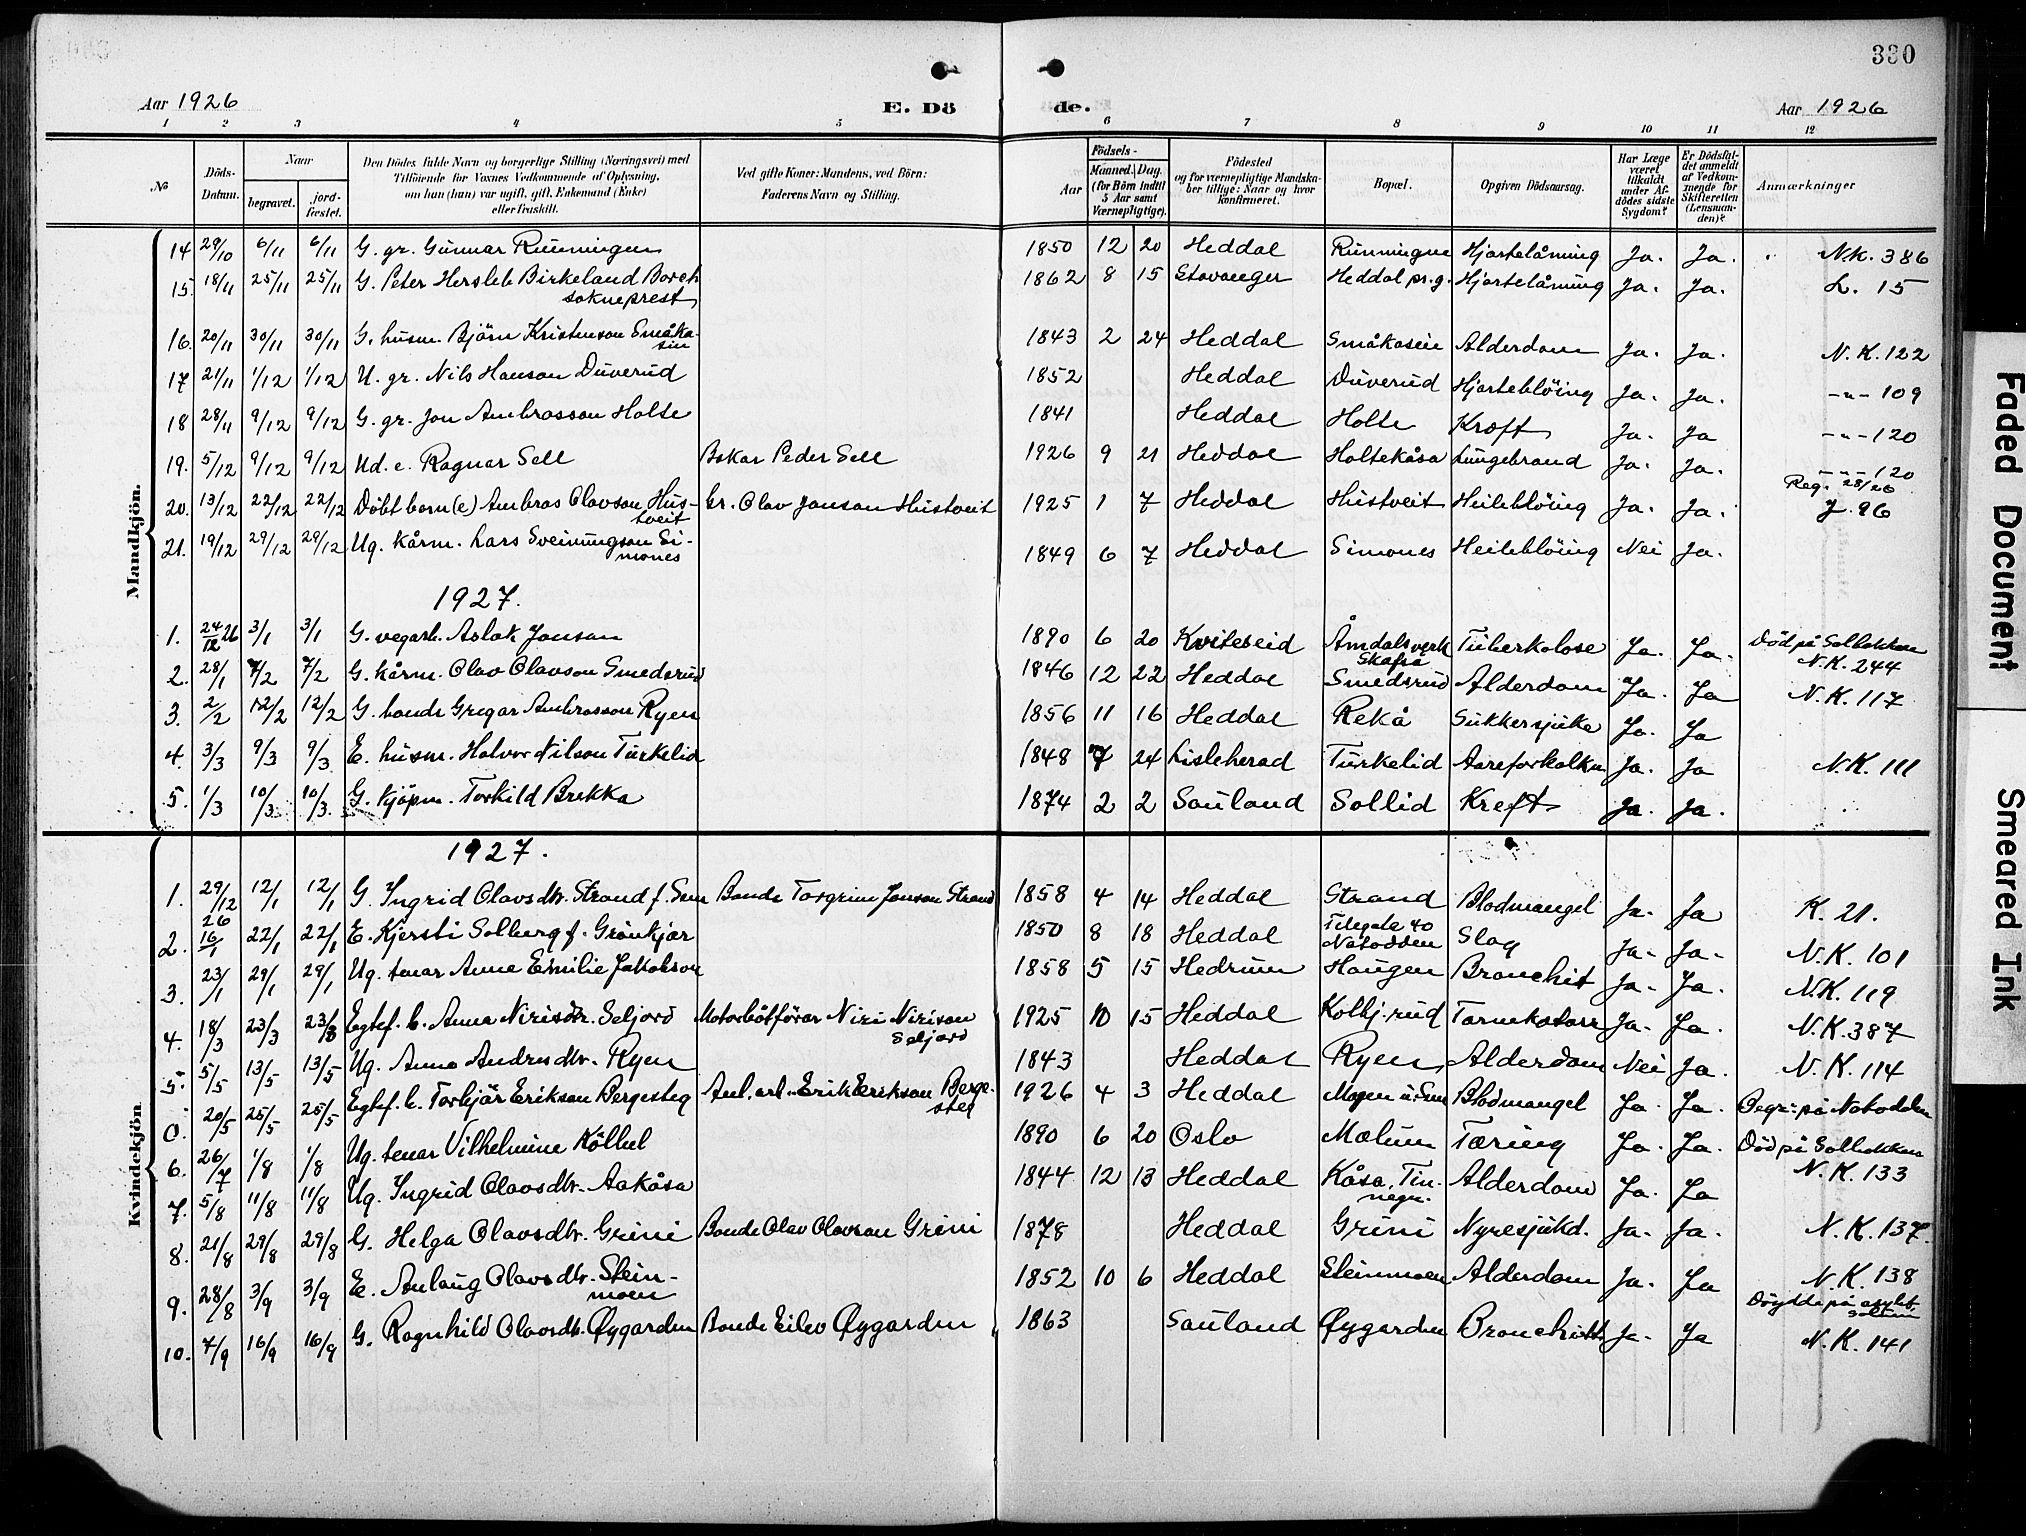 330
Aar 1926 E. Dö de. Aar 1926
1 2 3 4 5 6 7 8 9 10 11 12
No
Döds-Datum.
Naar begravet. jordfæstet.
Den Dödes fulde Navn og borgerlige Stilling (Næringsvei) med
Tilföiende for Voxnes Vedkommende af Oplysning,
om han (hun) var ugift, gift, Enkemand (Enke)
eller fraskilt.
Ved gifte Koner: Mandens, ved Börn:
Faderens Navn og Stilling.
Födsels-
Aar
Maaned. Dag.
(for Börn indtil
5 Aar samt
Værnepligtige).
Födested
og for værnepligtige Mandskaber tillige: Naar og hvor
konfirmeret.
Bopæl.
Opgiven Dödsaarsag.
Har Læge været tilkaldt under Afdödes sidste Sygdom?
Er Dödsfaldet anmeldt af Vedkommende for Skifteretten (Lensmanden)?
Anmærkninger
Mandkjön.
14 29/10 6/11 6/11 G. gr. Gunnar Runningen 1850 12 20 Heddal Runningen Hjartelåming Ja. Ja. N.K. 386
15. 18/11 25/11 25/11 G. Peter Hersleb Birkeland Borch sokneprest 1862 8 15 Stavanger Heddal pr.g. Hjartelåming Ja. Ja. L. 15
16. 20/11 30/11 30/11 G. husm. Björn Kristenson Småkasin 1843 2 24 Heddal Småkasin Alderdom Ja. Ja. N.K. 122
17 21/11 1/12 1/12 U. gr. Nils Hanson Duverud 1852 Heddal Duverud Hjarteblöing Ja. Ja. -"- 109
18 28/11 9/12 9/12 G. gr. Jon Ambrosson Holte 1841 Heddal Holte Kræft Ja. Ja -"- 120
19. 5/12 9/12 9/12 Ud. e. Ragnar Sell Bakar Peder Sell 1926 9 21 Heddal Holtekåsa Lungebrand Ja. Ja. -"- 120
20. 13/12 22/12 22/12 Döbt barn (e) Ambros Olavson Hustveit Gr. Olav Janson Hustveit 1925 1 7 Heddal Hustveit Heileblöing Ja. Ja. Reg. 28/26 J. 96
21. 19/12 29/12 29/12 Ug. kårm. Lars Sveinungson Simones 1849 6 7 Heddal Simones Heileblöing Nei Ja.
1927.
1. 24/12 26 3/1 3/1 G. vegarb. Aslak Janson 1890 6 20 Kviteseid Åmdalsverk Skafså Tuberkolose Ja. Ja. Död på Solbakken N.K. 244
2. 28/1 7/2 7/2 G. kårm. Olav Olavson Smedsrud 1846 12 22 Heddal Smedsrud Alderdom Ja. Ja N.K. 117
3. 2/2 12/2 12/2 G. bonde Gregar Ambrosson Ryen 1856 11 16 Heddal Rekå Sukkersjuke Ja. Ja
4. 3/3 9/3 9/3 E. husm. Halvor Nilson Turkelid 1848 7 24 Lisleherad Turkelid Aareforkalkn Ja. Ja N.K. 111
5. 1/3 10/3 10/3 G. kjöpm. Torkild Brekka 1874 2 2 Sauland Sollid Kreft Ja. Ja.
Kvindekjön.
1927.
1. 29/12 26 12/1 12/1 G. Ingrid Olavsdtr. Strand f. Sem Bonde Torgrim Janson Strand 1858 4 14 Heddal Strand Blodmangel Ja. Ja K. 21.
2. 16/1 22/1 22/1 E. Kjersti Solberg f. Grönkjær 1850 8 18 Heddal Telegate 40 Notodden Slag Ja. Ja. N.K. 101
3. 23/1 29/1 29/1 Ug. tenar Anne Emilie Jakobson 1858 5 15 Hedrum Haugen Bronchit Ja. Ja. N.K. 119
4. 18/3 23/3 23/3 Egtef. b. Anna Nirisdtr. Seljord Motorbåtförar Niri Nirison Seljord 1925 10 15 Heddal Kolbj.rud Tarmkatarr Ja. Ja. N.K. 387
5. 5/5 13/5 13/5 Ug. Anne Andresdtr. Ryen 1843 Heddal Ryen Alderdom Nei Ja. N.K. 114
0. 20/5 25/5 25/5 Egtef. b. Torbjör Erikson Bergesteg Anl. arb. Erik Erikson Bergesteg 1926 4 3 Heddal Mogen u. Sem Blodmangel Ja. Ja. Begr. på Notodden
6. 26/7 1/8 1/8 Ug. tenar Vilhelmine Kölbel 1890 6 20 Oslo Mælum Tæring Ja. Ja. Död på Solbakken
7. 5/8 11/8 11/8 Ug. Ingrid Olavsdtr. Aakåsa 1844 12 13 Heddal Kåsa, Tinnegr. Alderdom Ja. Ja N.K. 133
8. 21/8 29/8 29/8 G. Helga Olavsdtr. Grini Bonde Olav Olavson Grini 1878 Heddal Grini Nyresjukd. Ja. Ja. N.K. 137.
9. 28/8 3/9 3/9 E. Anlaug Olavsdtr. Steinmoen 1852 10 6 Heddal Steinmoen Alderdom Ja. Ja N.K. 138
10. 7/9 16/9 16/9 G. Ragnhild Olavsdtr. Øygarden Bonde Eilev Øygarden 1863 Sauland Øygarden Bronchitt Ja. Ja Döydde på N.K. 141
Faded Document
Smeared Ink